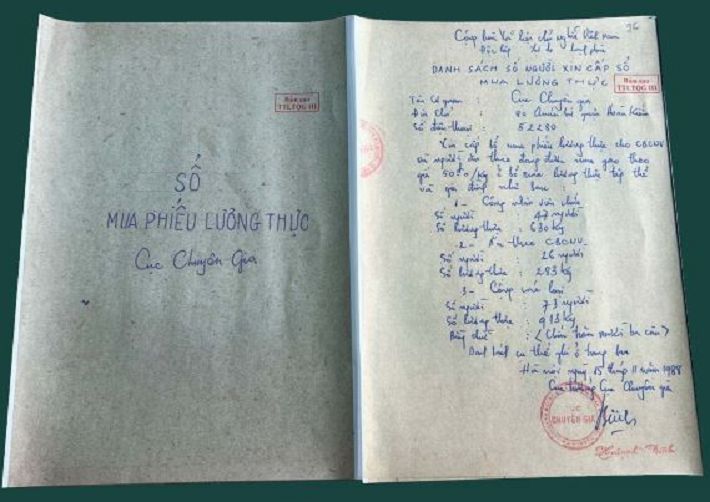 SỔ
MUA PHIẾU LƯƠNG THỰC
Cục Chuyên Gia
Bản sao
TTLTQG III
96
Cộng hoà Xã hội chủ nghĩa Việt Nam
Độc lập Tự do Hạnh phúc
DANH SÁCH SỐ NGƯỜI XIN CẤP SỔ
MUA LƯƠNG THỰC
Bản sao
TTLTQG III
Tên Cơ quan : Cục Chuyên gia
Địa chỉ : 80 quận Hoàn Kiếm
Số điện thoại : 52280
Xin cấp sổ mua phiếu lương thực cho CBCNV
và người ăn theo đang mua gạo theo
giá /kg ở sổ lương thực tập thể
và gia đình như sau :
1 - Công nhân viên chức
Số người : 47 người
Số lượng thực : 630 kg
2 - Ăn theo CBCNV
Số người : 26 người
Số lượng thực : 283 kg
3 - Cộng hai loại
Số người : 73 người
Số lượng thực : 913 kg
Bằng chữ : < Chín trăm mười ba cân >
Danh sách cụ thể ghi ở trang sau
Hà nội ngày 15 tháng 11 năm 1988
Cục trưởng Cục Chuyên gia
CỤC
CHUYÊN GIA